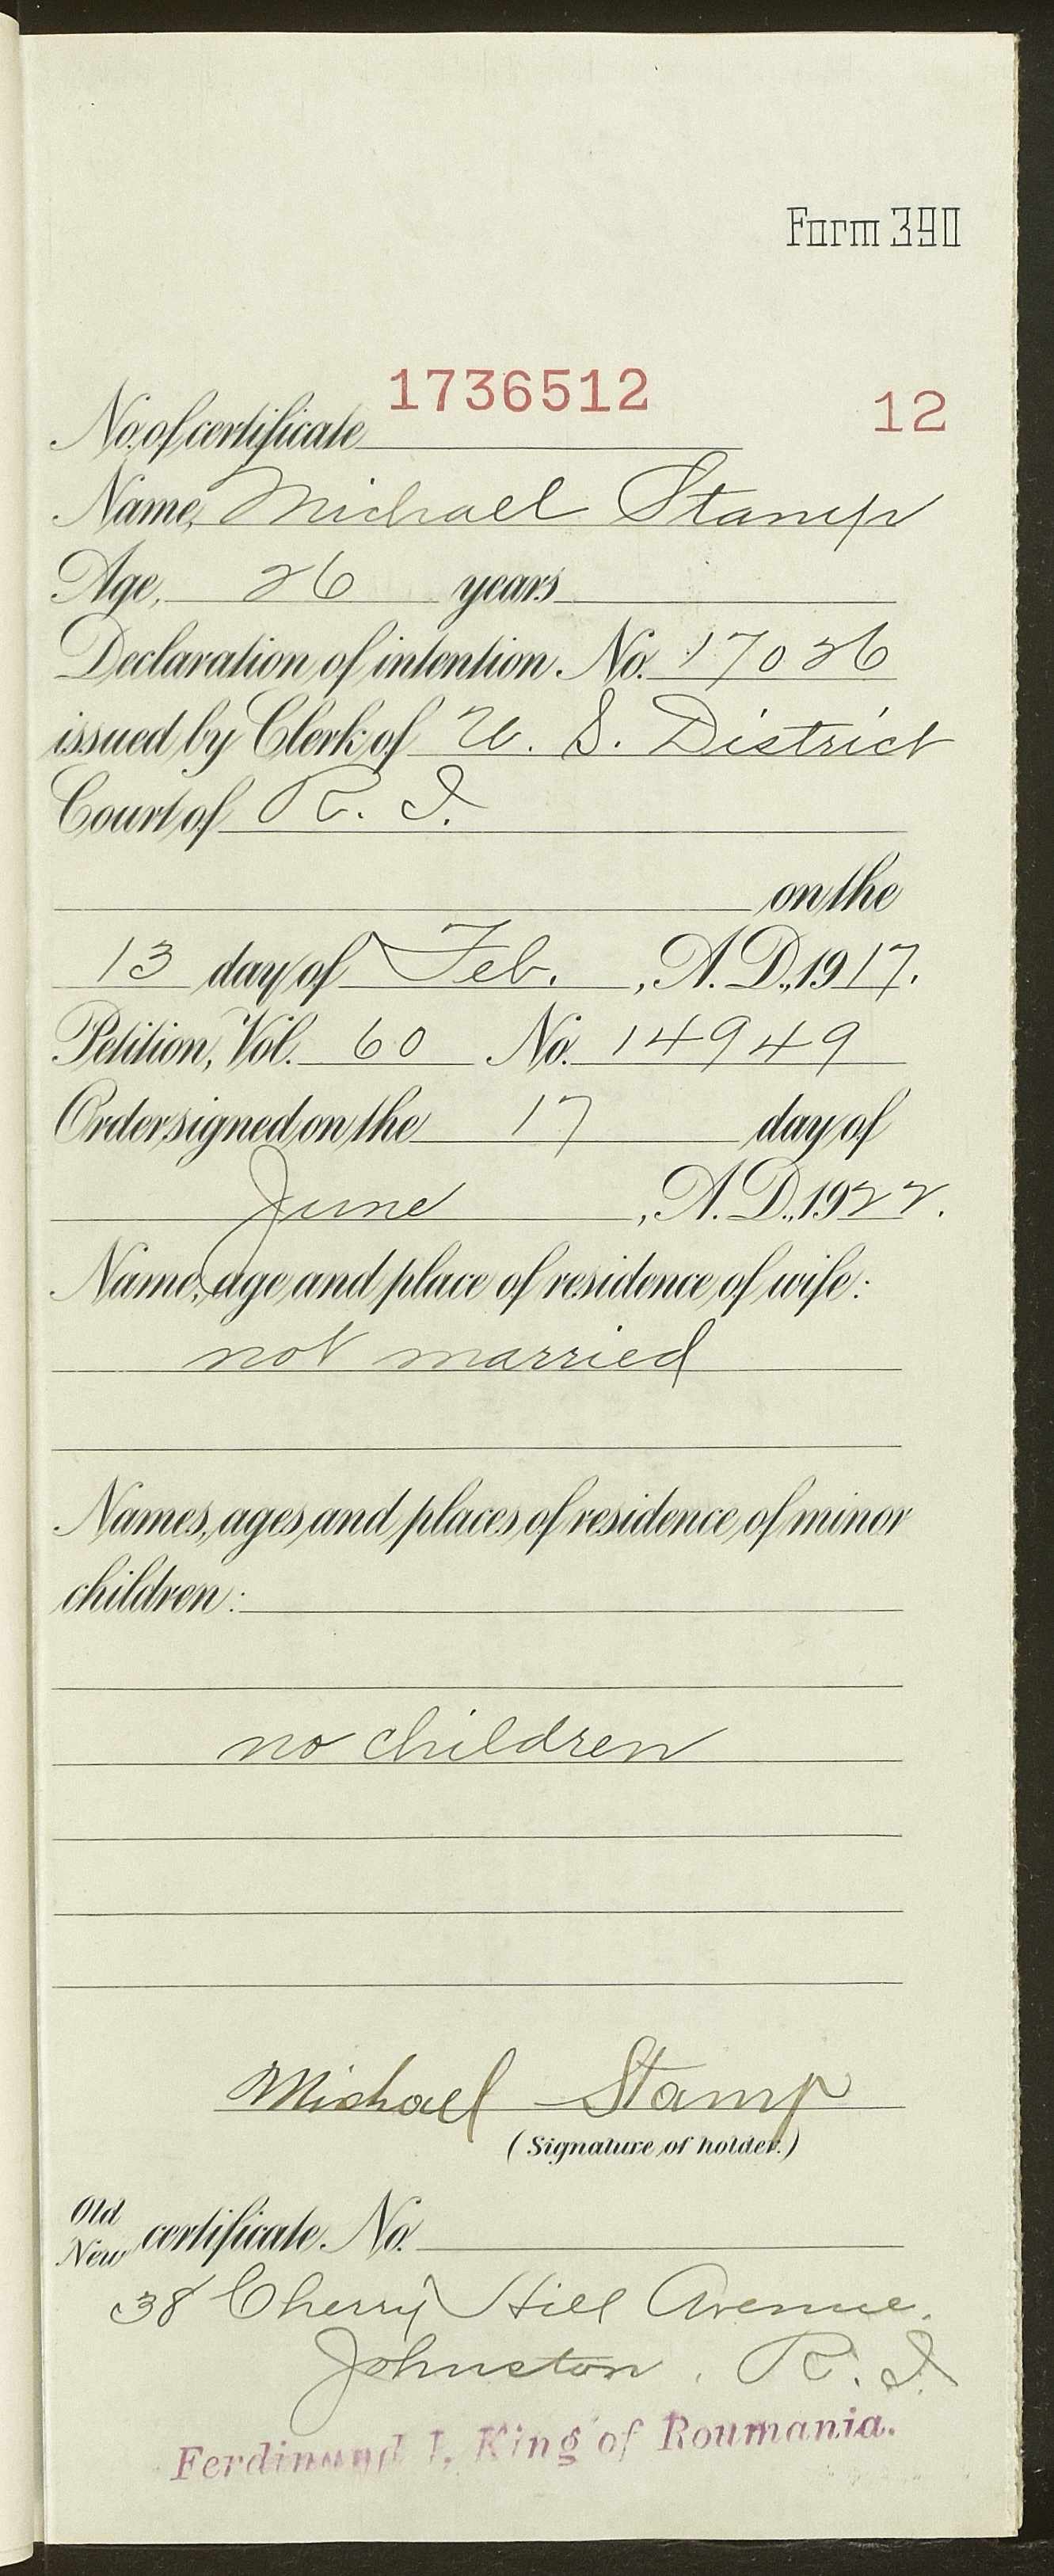 Form 390
1736512
12
No. of certificate
Name, Michael Stamp
Age, 26 years
Declaration of intention. No. 17026
issued by Clerk of U. S. District
Court of R. I.
on the
13 day of Feb. , A. D., 1917.
Petition, Vol. 60 No. 14949
Order signed on the 17 day of
June , A. D., 1922.
Name, age and place of residence of wife:
not married
Names, ages and places of residence of minor
children:
no children
Michael Stamp
(Signature of holder.)
Old
New certificate. No.
38 Cherry Hill Avenue.
Johnston, R. I.
Ferdinand I, King of Roumania.